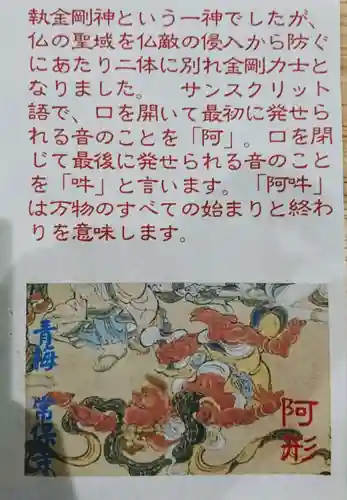 執金剛神という一神でしたが、
仏の聖域を仏敵の侵入から防ぐ
にあたり二体に別れ金剛力士と
なりました。　サンスクリット
語で、口を開いて最初に発せら
れる音のことを「阿」。口を閉
じて最後に発せられる音のこと
を「吽」と言います。「阿吽」
は万物のすべての始まりと終わ
りを意味します。
青梅
常保寺
阿形